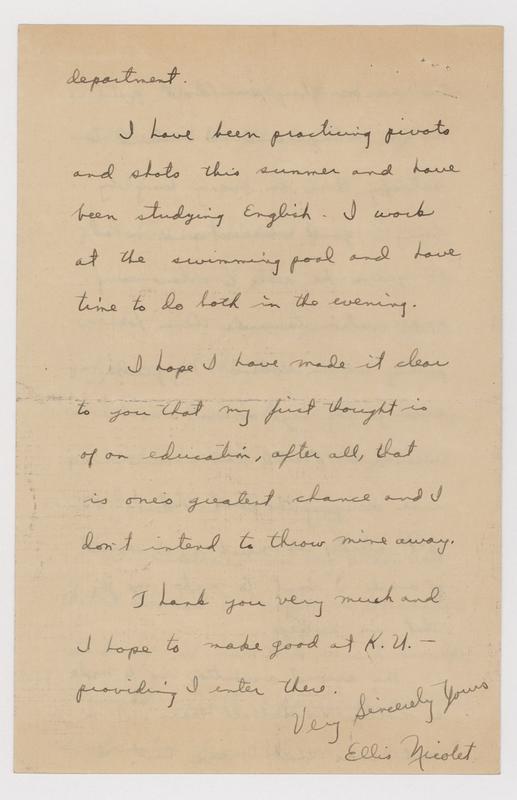 department.
I have been practicing pivots
and shots this summer and have
been studying English. I work
at the swimming pool and have
time to do both in the evening.
I hope I have made it clear
to you that my first thought is
of an education, after all, that
is one's greatest chance and I
don't intend to throw mine away.
I thank you very much and
I hope to make good at K.U. —
providing I enter there.
Very Sincerely Yours
Ellis Nicolet